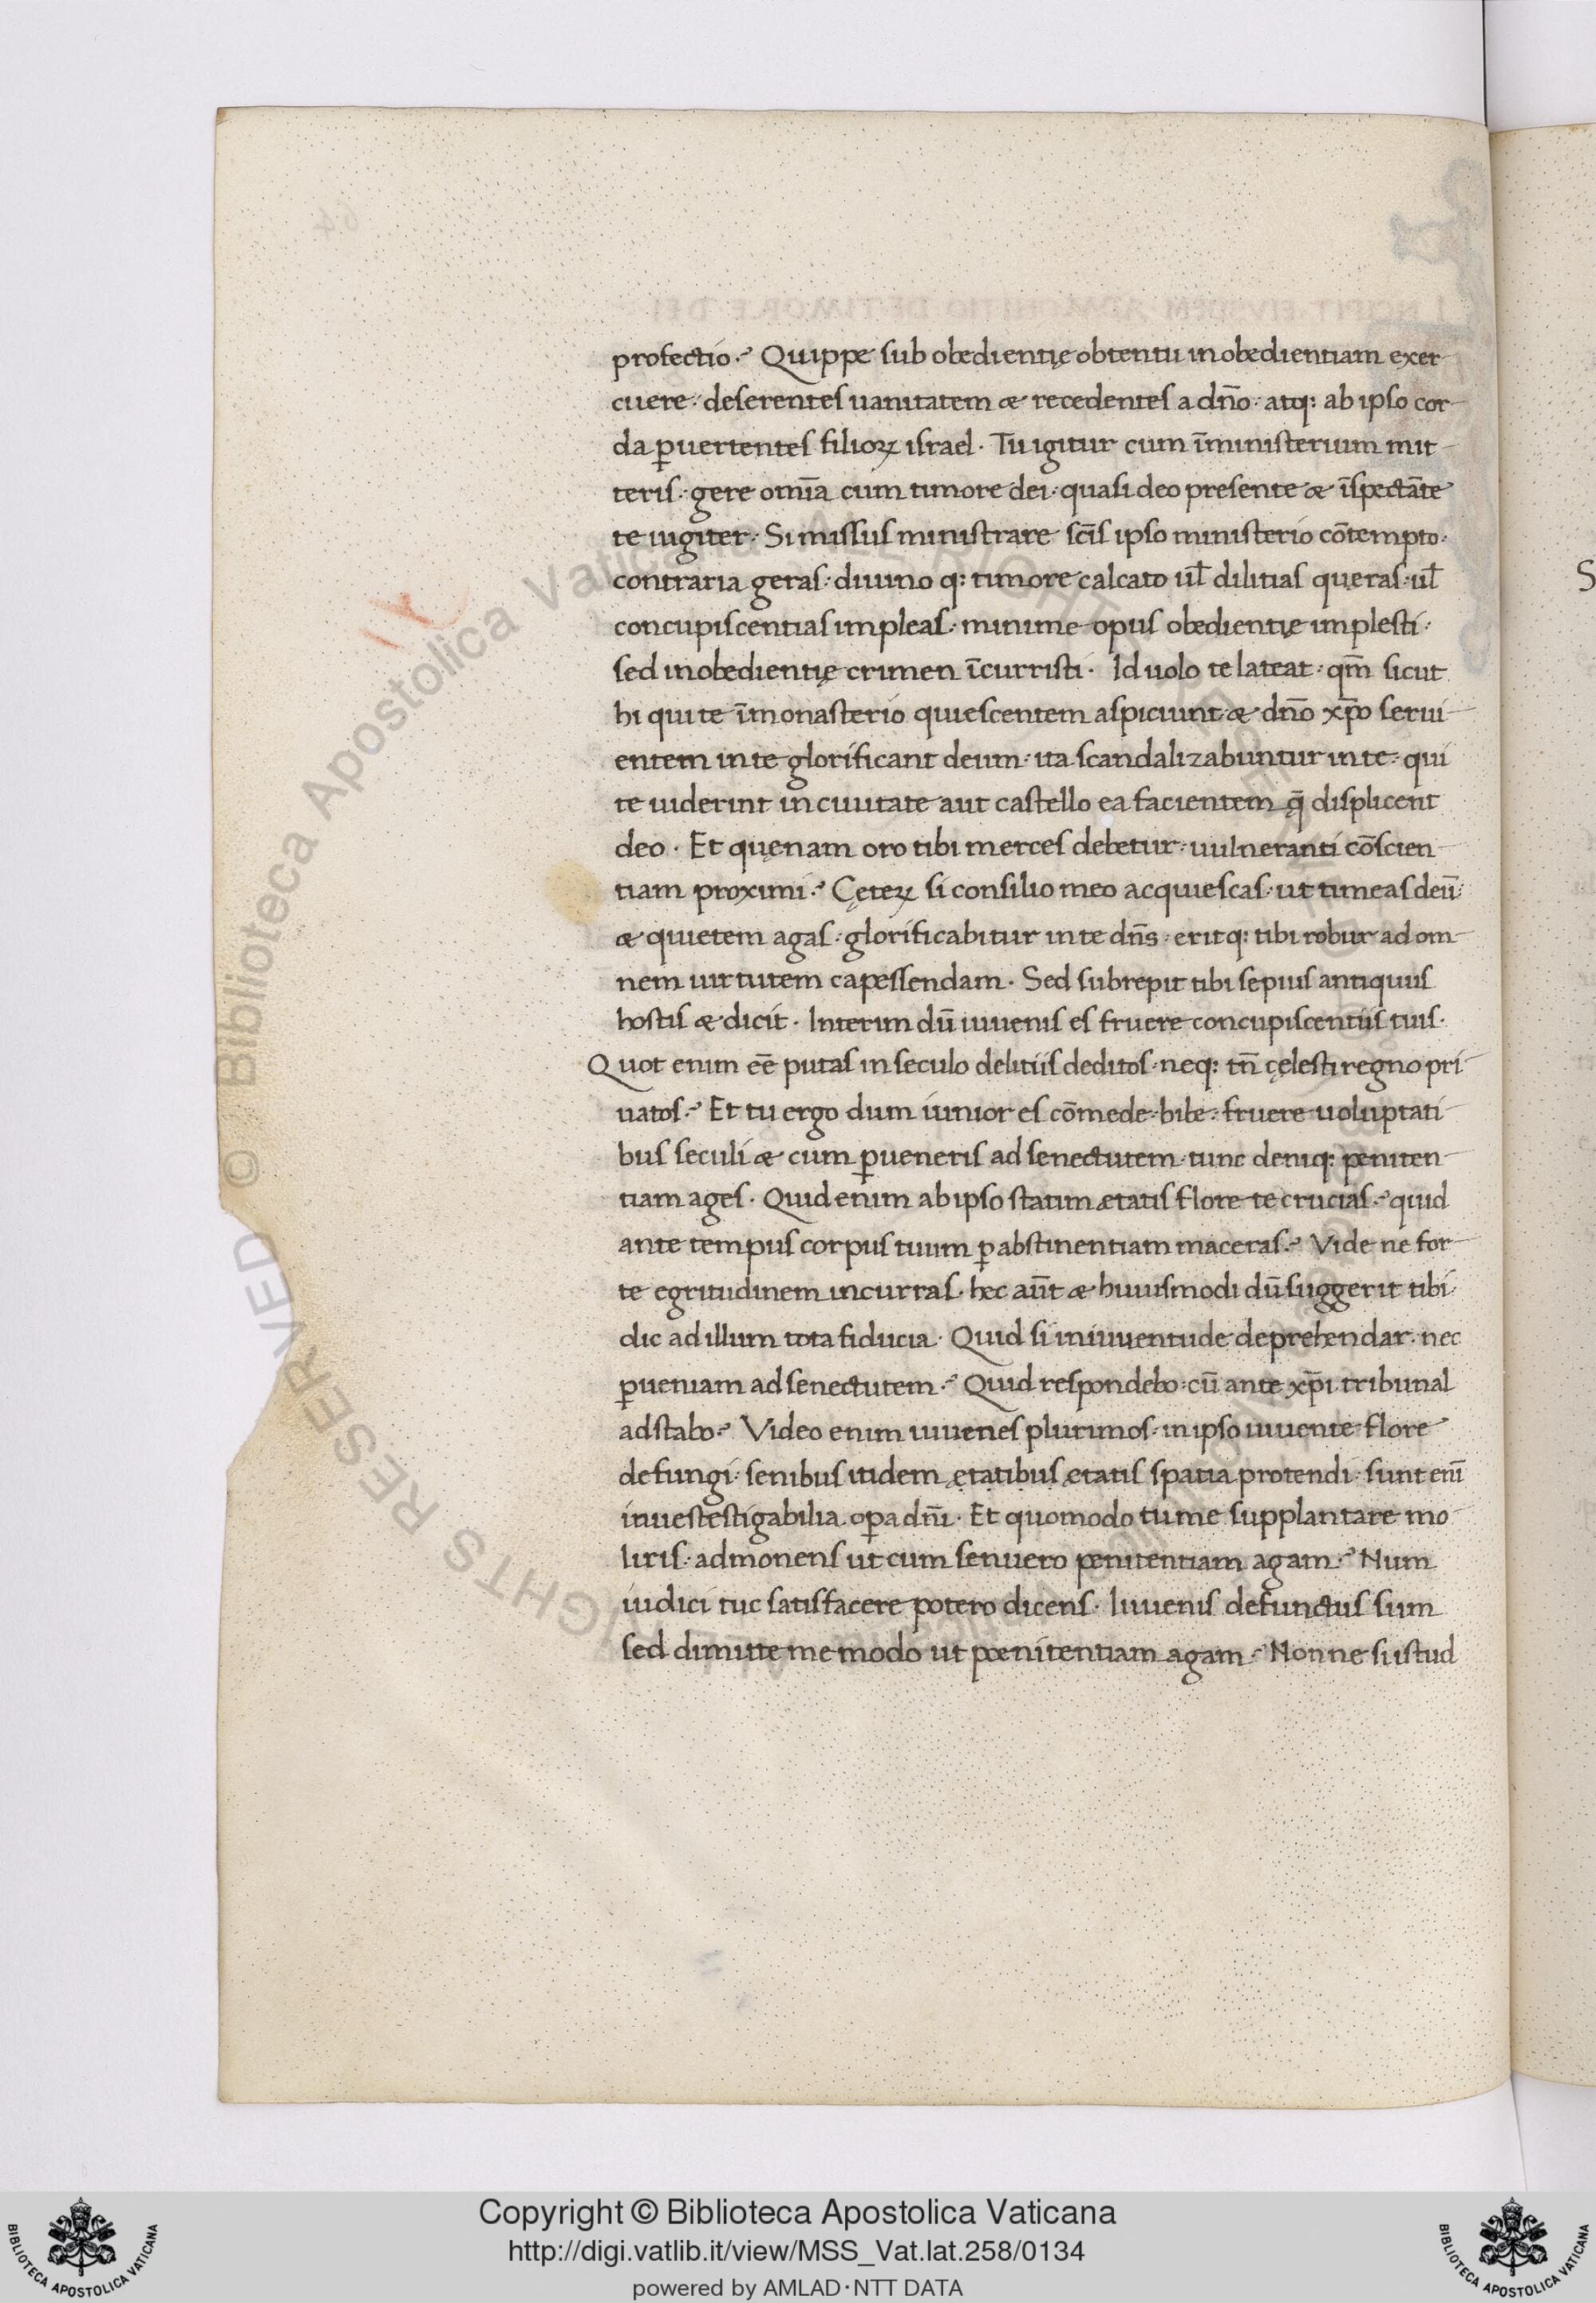 profectio. Quippe sub obedientię obtentu inobedientiam exer
cuere: deserentes uanitatem & recedentes a dn̄o: atq: ab ipso cor
da ꝑuertentes filioꝝ israel. Tu igitur cum īministerium mit
teris: gere omīa cum timore dei: quasi deo presente & īspectāte
te iugiter: Si missus ministrare sc̄is ipso ministerio cōtempto:
contraria geras: diuino q: timore calcato ul̄ dilitias quęras: ul̄
concupiscentias impleas: minime opus obedientię implesti:
sed inobedientię crimen īcurristi. Id uolo te lateat: qm̄ sicut
hi qui te īmonasterio quiescentem aspiciunt & dn̄o xp̄o serui
entem in te glorificant deum: ita scandalizabuntur in te: qui
te uiderint in ciuitate aut castello ea facientem q̨̄ displicent
deo. Et quęnam oro tibi merces debetur: uulneranti cōscien
tiam proximi. Cęteꝝ si consilio meo acquiescas: ut timeas deū:
& quietem agas: glorificabitur in te dn̄s: eritq: tibi robur ad om
nem uirtutem capessendam. Sed subrepit tibi sepius antiquus
hostis & dicit. Interim dū iuuenis es fruere concupiscentiis tuis.
Quot enim eē putas in seculo delitiis deditos: neq: tn̄ cęlesti regno pri
uatos. Et tu ergo dum iunior es cōmede: bibe: fruere uoluptati
bus seculi & cum ꝑueneris ad senectutem: tunc deniq: peniten
tiam ages. Quid enim ab ipso statim ætatis flore te crucias. quid
ante tempus corpus tuum ꝑ abstinentiam maceras. Vide ne for
te egritudinem incurras. hec aūt & huiusmodi dū suggerit tibi:
dic ad illum tota fiducia. Quid si in iuuentude deprehendar: nec
ꝑueniam ad senectutem. Quid respondebo: cū ante xp̄i tribunal
adstabo. Video enim iuuenes plurimos: in ipso iuuente flore
defungi: senibus itidem ętatibus ętatis spatia protendi: sunt enī
inuestestigabilia oꝑa dn̄i. Et quomodo tu me supplantare mo
liris: admonens ut cum senuero penitentiam agam. Num
iudici tūc satisfacere potero dicens. Iuuenis defunctus sum
sed dimitte me modo ut pœnitentiam agam. Nonne si istud
Copyright © Biblioteca Apostolica Vaticana
http://digi.vatlib.it/view/MSS_Vat.lat.258/0134
powered by AMLAD·NTT DATA
BIBLIOTECA APOSTOLICA VATICANA
BIBLIOTECA APOSTOLICA VATICANA